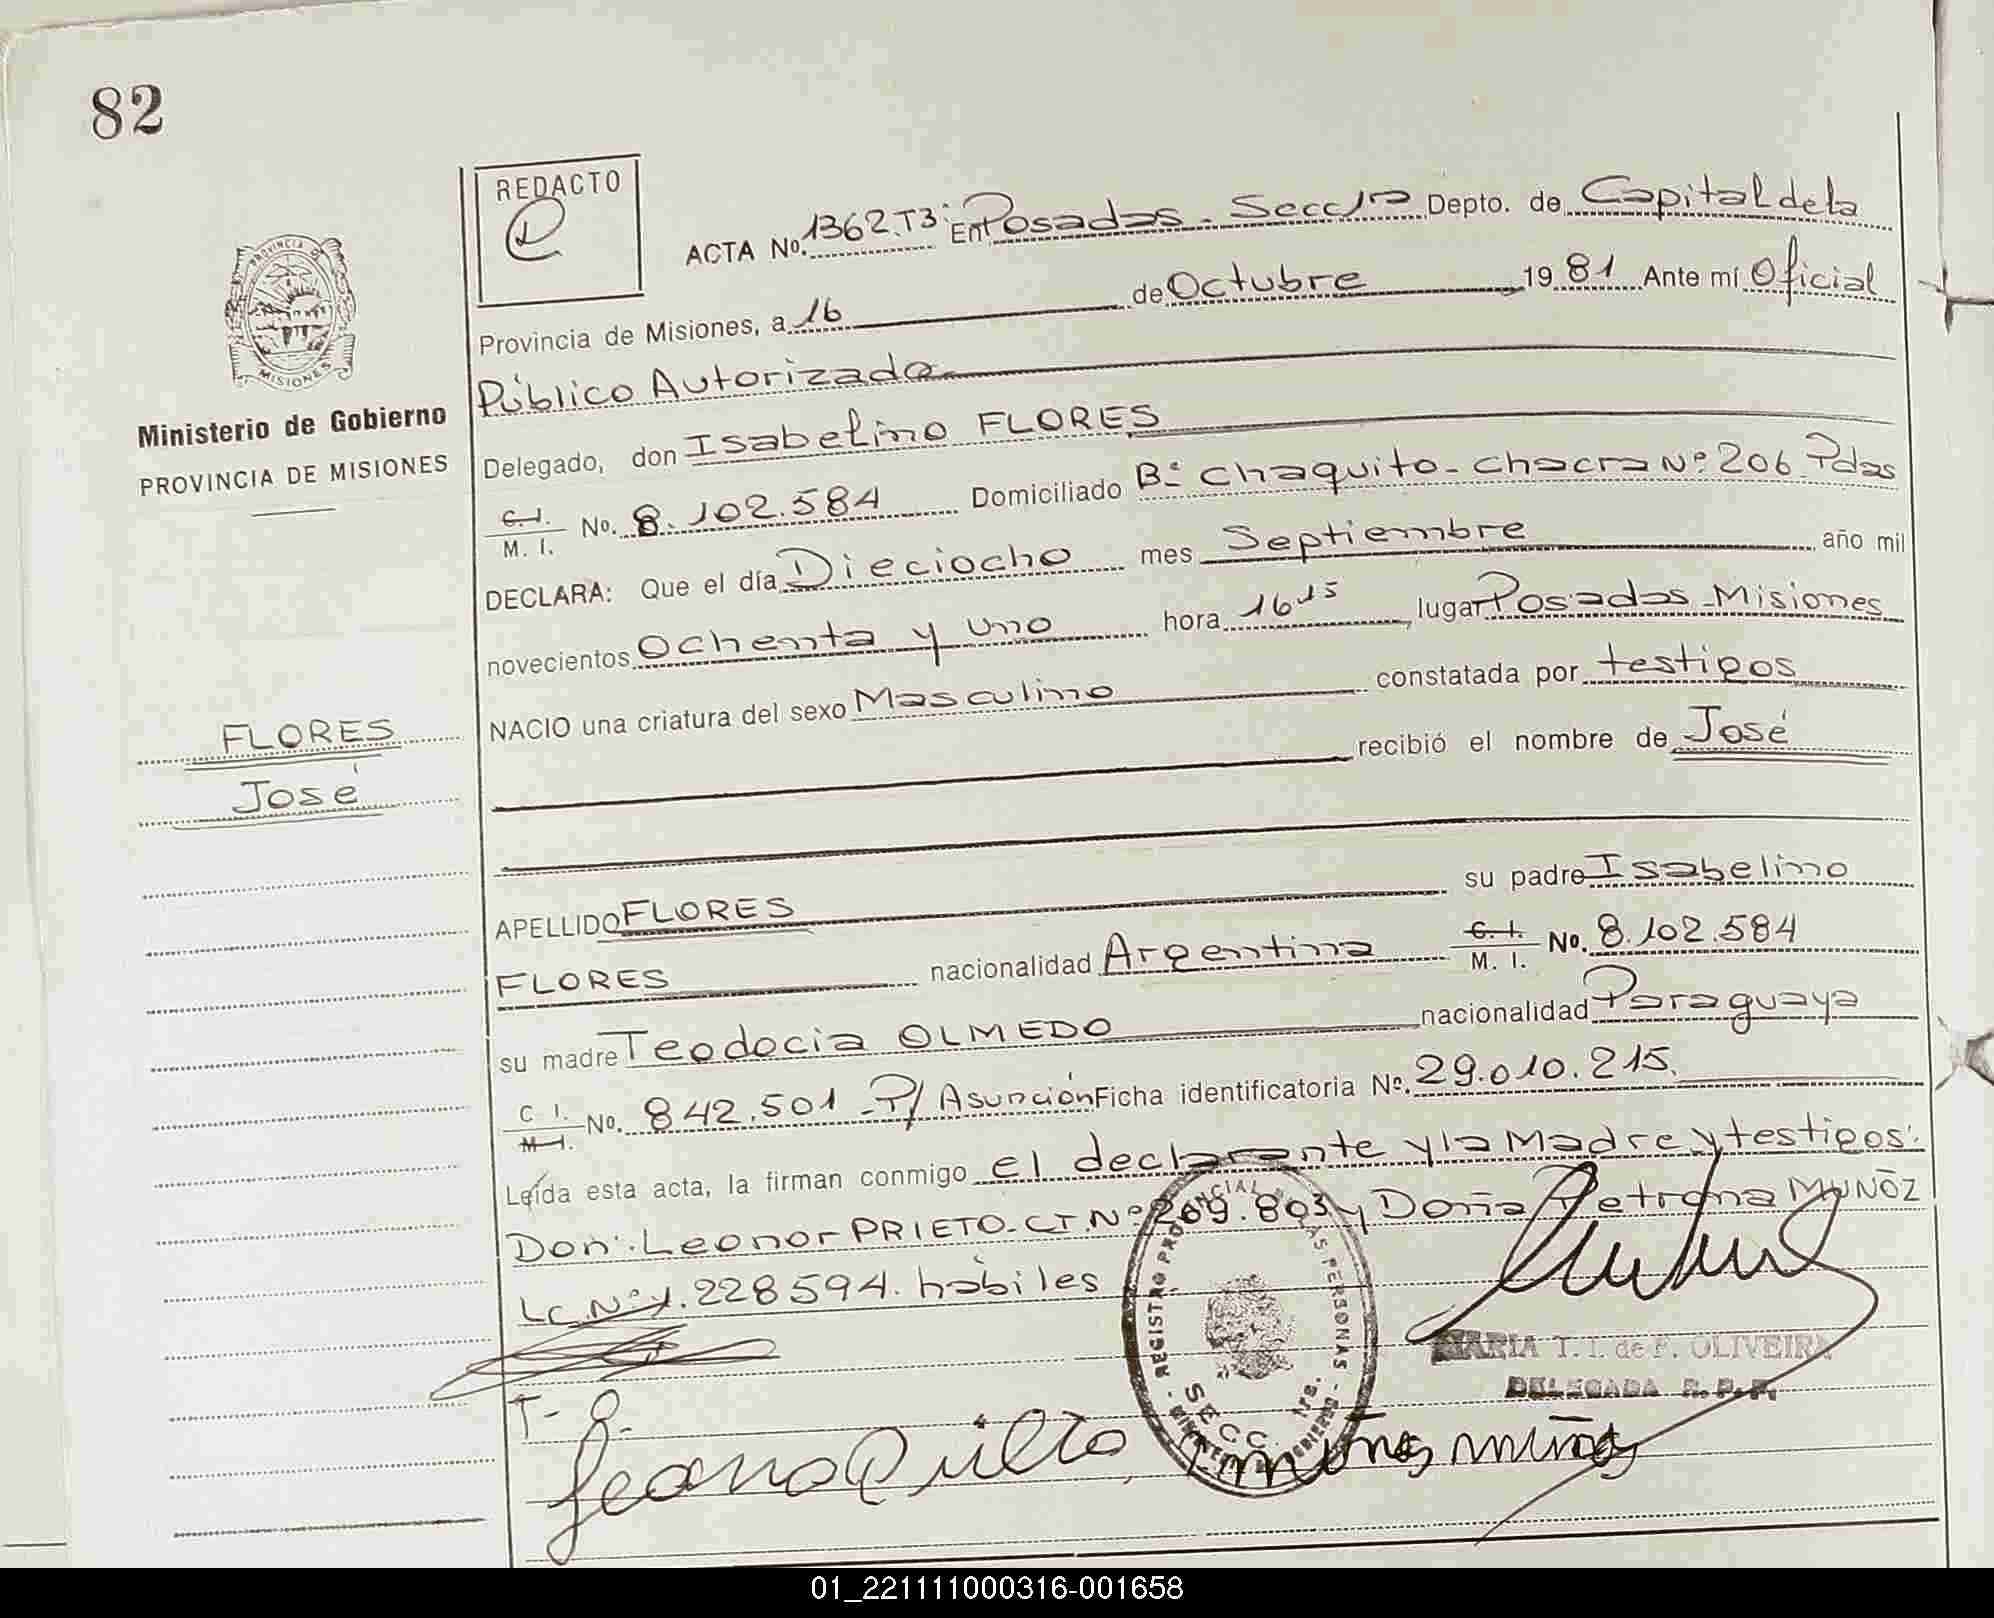 82
REDACTO
ACTA No. 1362.T3: En Posadas - Secc 1ra Depto. de Capital de la
Provincia de Misiones, a 16 de Octubre 1981 Ante mí Oficial
Público Autorizado
Delegado, don Isabelino FLORES
C.I. M. I. No. 8.102.584 Domiciliado Bº Chaquito - Chacra Nº 206 Pdas
DECLARA: Que el día Dieciocho mes Septiembre año mil
novecientos Ochenta y uno hora 16 15, lugar Posadas - Misiones
NACIO una criatura del sexo Masculino constatada por testigos
recibió el nombre de José
APELLIDO FLORES su padre Isabelino
FLORES nacionalidad Argentina C.I. M. I. No. 8.102.584
su madre Teodocia OLMEDO nacionalidad Paraguaya
C I. M.I. No. 842.501 - P/ Asunción Ficha identificatoria No. 29.010.215.
Leída esta acta, la firman conmigo el declarante y la Madre y testigos:
Don: Leonor PRIETO - C.I. Nº 269.803 y Doña Petrona MUÑOZ
LC. Nº 1.228594. hábiles
PROVINCIA DE
MISIONES
Ministerio de Gobierno
PROVINCIA DE MISIONES
FLORES
José
REGISTRO PROVINCIAL DE LAS PERSONAS
MINISTERIO DE GOBIERNO
SECC. 1ra.
MARIA T. I. de F. OLIVEIRA
DELEGADA R. P. P.
01_221111000316-001658